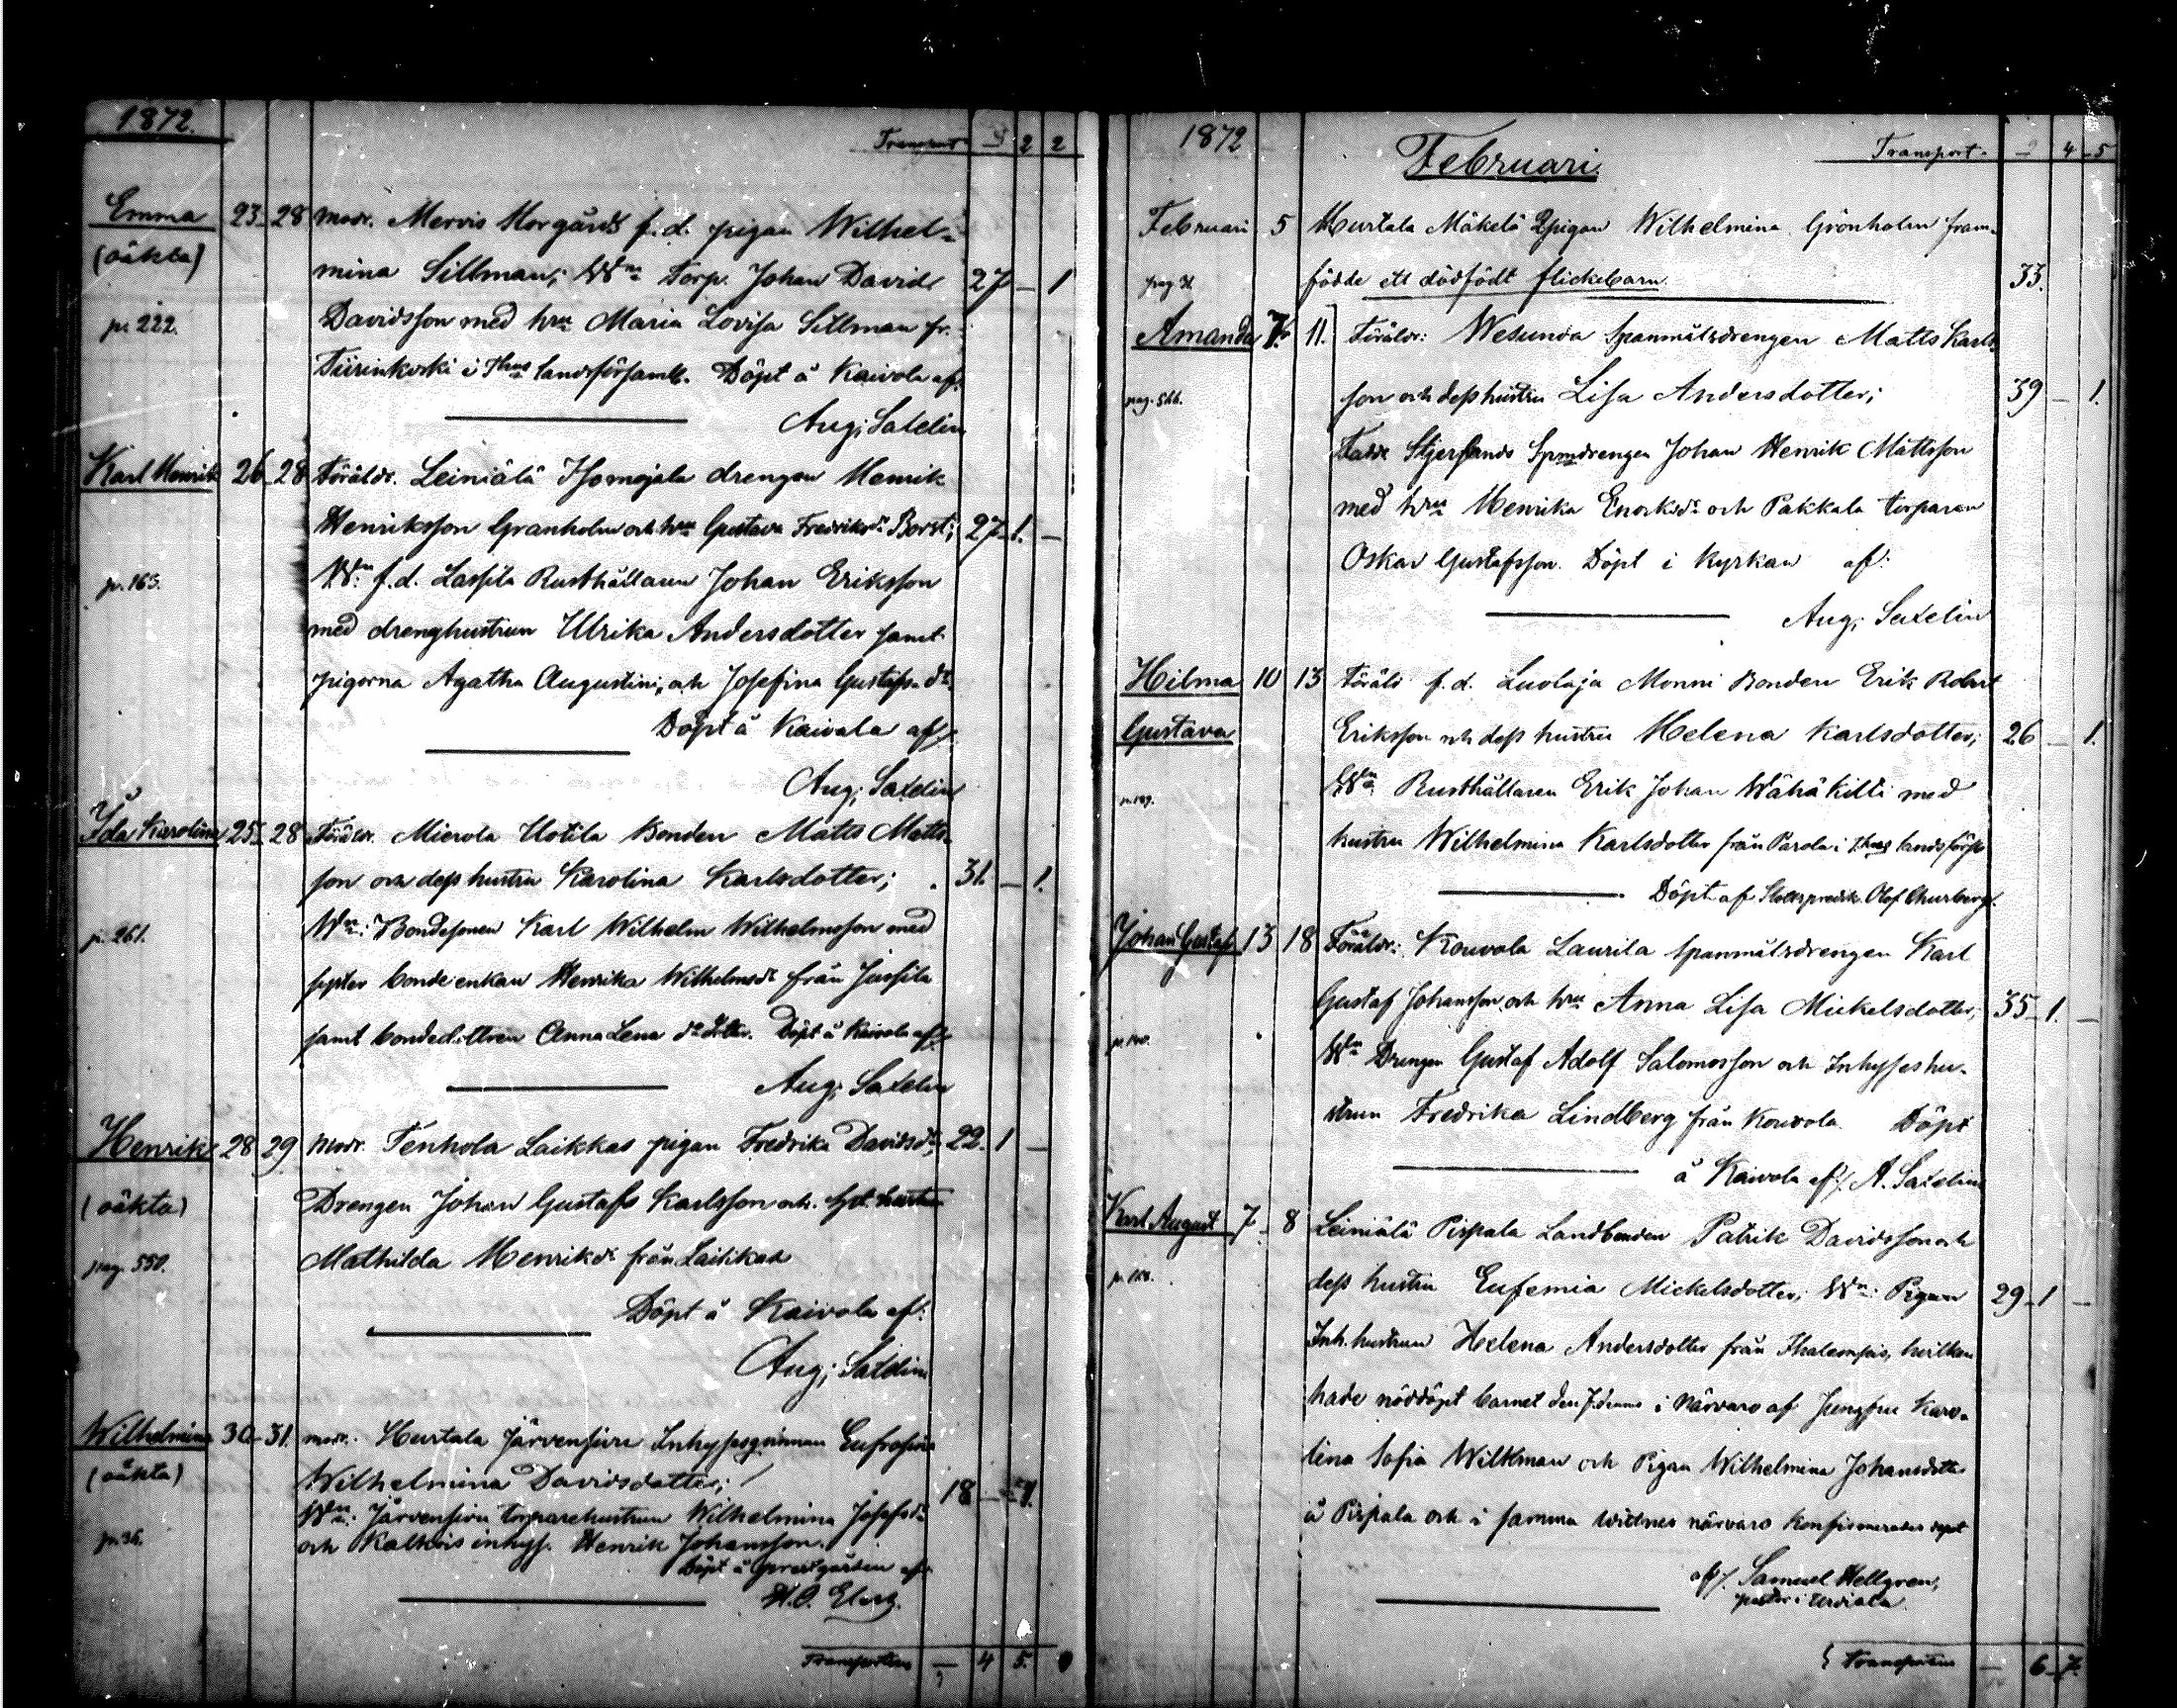 1872.
Transport 2 2
Emma 23 28 modr. Mervis Norgårds f.d. pigan Wilhel-
(oäkta) mina Sillman; Wn Torp. Johan David 27 - 1
p. 222. Davidsson med hru Maria Lovisa Sillman fr.
i Thus landsförsaml. Döpt å Kaivola af:
Aug; Saxelin
Karl Henrik 26 28 Föräldr. Leiniälä drengen Henrik
Henriksson Granholm och hru Gustava Fredriksdr Borst; 27 1. -
p. 163. Wn: f.d. Lassila Rusthållaren Johan Eriksson
med drenghustrun Ulrika Andersdotter samt
pigorna Agatha Augustini, och Josefina Gustafsdr
Döpt å Kaivola af:
Aug; Saxelin
Ida Karolina 25 28 Föräldr. Mierola Uotila Bonden Matts Matts-
son och dess hustru Karolina Karlsdotter; 31. - 1.
p. 261. Wn: Bondesonen Karl Wilhelm Wilhelmsson med
syster bonde enkan Henrika Wilhelmsdr från Jussila
samt bondedottren Anna Lena Döpt å Kaivola af:
Aug; Saxelin
Henrik 28 29 modr. Tenhola Laikkas pigan Fredrika Davidsdr; 22. 1 -
(oäkta) Drengen Johan Gustafs Karlsson och hustru
pag. 550. Mathilda Henriksdr från Laikkas
Döpt å Kaivola af:
Aug; Saxelin
Wilhelmina 30 31. modr. Hurtala Järvensivu Inhysesqvinnan Eufrosina
(oäkta) Wilhelmina Davidsdotter; 18 - 1.
Wn: Järvensivu torparehustrun Wilhelmina Josefsdr
p. 36. och Kalkois inhys. Henrik Johansson.
Döpt å prestgården af:
Transporteras - 4 5.
1872
Februari
Transport - 4 5
Februari 5 Hurtala Mäkelä pigan Wilhelmina Grönholm fram-
födde ett dödfödt flickebarn. 33.
Amanda 7. 11. Föräldr: Wesunda Spanmålsdrengen Matts Karls-
pag. 566. son och dess hustru Lisa Andersdotter; 39 - 1.
Fadd. Stjersands Spmdrengen Johan Henrik Mattsson
med hru Henrika Enoksdr och Pakkala torparen
Oskar Gustafsson. Döpt i Kyrkan af:
Aug; Saxelin
Hilma 10 13 Föräld f.d. Luolaja Monni Bonden Erik Robert
Gustava Eriksson och dess hustru Helena Karlsdotter; 26 - 1.
Wn Rusthållaren Erik Johan Wähä Kilti med
hustru Wilhelmina Karlsdotter från Parola i Thus landsförs
Döpt af Slottspredik. Olof Churberg.
Johan Gustaf 13 18 Föräldr: Kouvola Laurila Spanmålsdrengen Karl
Gustaf Johansson och hru Anna Lisa Mickelsdotter; 35 1. -
Wn Drengen Gustaf Adolf Salomosson och Inhyseshu-
strun Fredrika Lindberg från Kouvola Döpt
å Kaivola af: A. Saxelin
Karl August 7 8 Leiniälä Pispala Landbonden Patrik Davidsson och
dess hustru Eufemia Mickelsdotter; Wn: Pigan 29 1 -
Inh. hustrun Helena Andersdotter från hvilken
hade nöddöpt barnet den 7 dennes i närvaro af Jungfru Karo-
lina Sofia Willman och Pigan Wilhelmina Johansdotter
å Pispala och i samma vittnes närvaro konfirmerades dopet
af: Samuel Hellgren,
pastor i Urdiala
Transporteras - 6 7.